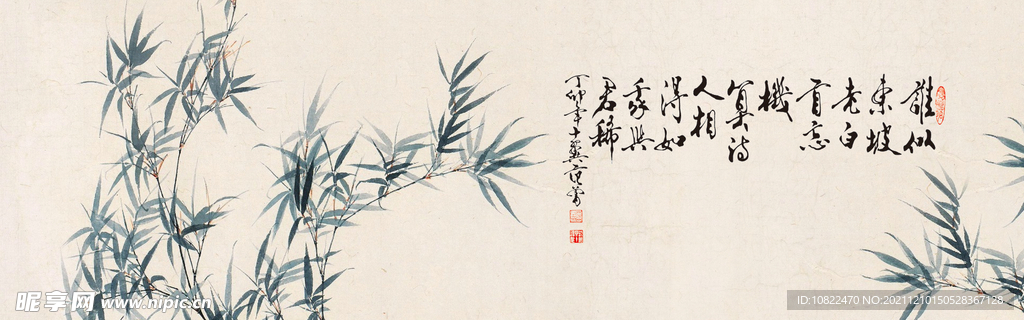 誰似
東坡
老白
首忘
機
算詩
人相
得如
我與
君稀
丁卯年十翼范曾
昵享网 www.nipic.cn
ID:10822470 NO:20211210150528367128